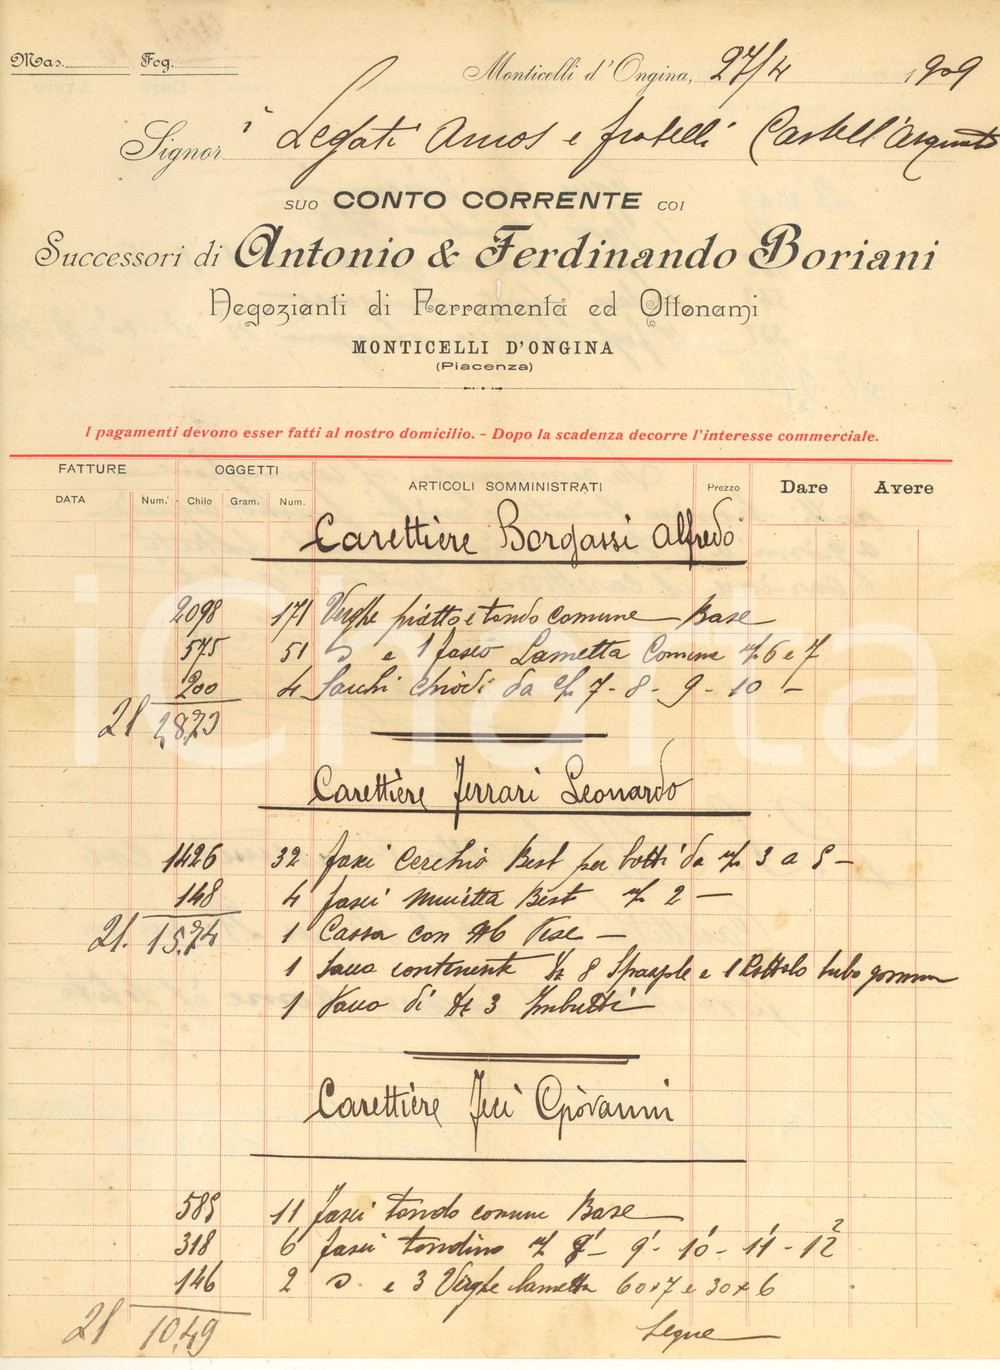 Mas. Fog.
Monticelli d'Ongina, 27/4 1909
Signor i Legati Amos e fratelli Castell'Arquato
SUO CONTO CORRENTE COI
Successori di Antonio & Ferdinando Boriani
Negozianti di Ferramenta ed Ottonami
MONTICELLI D'ONGINA
(Piacenza)
I pagamenti devono esser fatti al nostro domicilio. - Dopo la scadenza decorre l'interesse commerciale.
FATTURE OGGETTI ARTICOLI SOMMINISTRATI Prezzo Dare Avere
DATA Num. Chilo Gram. Num.
Carettière Borgassi Alfredo
2098 171 Verghe piatto e tondo comune Base
575 51 e 1 fascio Lametta Comune 6 e 7
200 4 Sacchi chiodi da 7 - 8 - 9 - 10 -
2873
Carettière Ferrari Leonardo
1426 32 fasci Cerchio Best per botti da 3 a 5 -
148 4 fasci Best 2 -
1574 1 Cassa con -
1 Sacco contenente 8 e 1 tubo gomma
1 di 3 Imbutti
Carettière Giòvanni
585 11 fasci tondo comune Base
318 6 fasci tondino 8 - 9 - 10 - 11 - 12
146 2 e 3 Verghe lametta 60x7 e 30x6
1049 Segue
iCharta